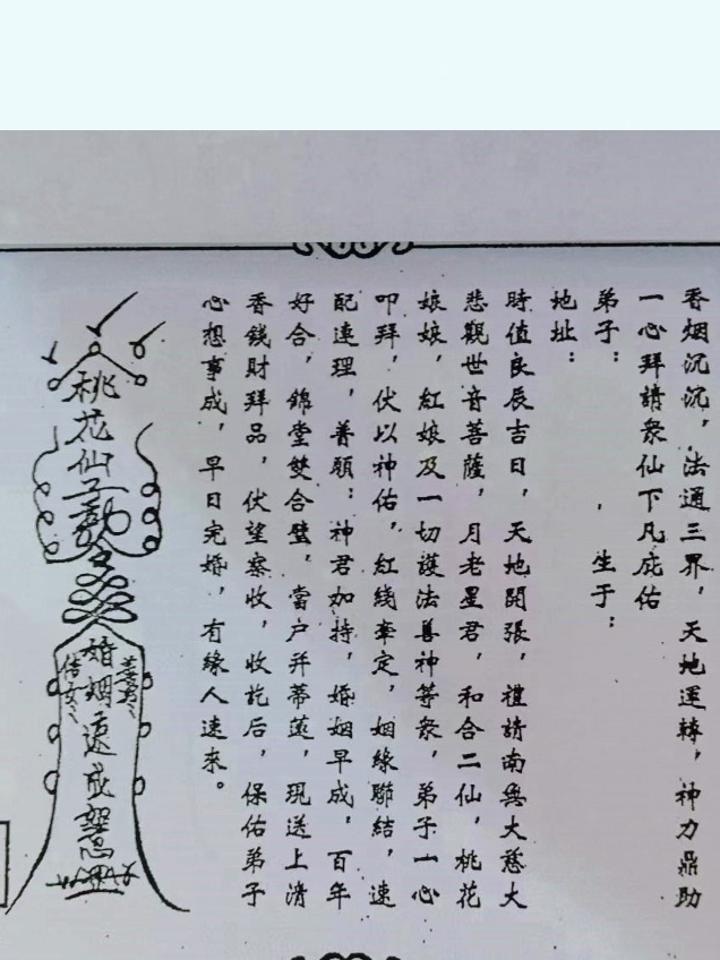 香烟沉沉，法通三界，天地運轉，神力鼎助
一心拜請衆仙下凡庇佑
弟子：　　　，生于：
地址：
時值良辰吉日，天地開張，禮請南無大慈大
悲觀世音菩薩，月老星君，和合二仙，桃花
娘娘，紅娘及一切護法善神等衆，弟子一心
叩拜，伏以神佑，紅綫牽定，姻緣聯結，速
配連理，普願：神君加持，婚姻早成，百年
好合，錦堂雙合璧，當户并蒂蓮，現送上清
香錢財拜品，伏望察收，收訖后，保佑弟子
心想事成，早日完婚，有緣人速來。
桃花仙子
婚烟速成